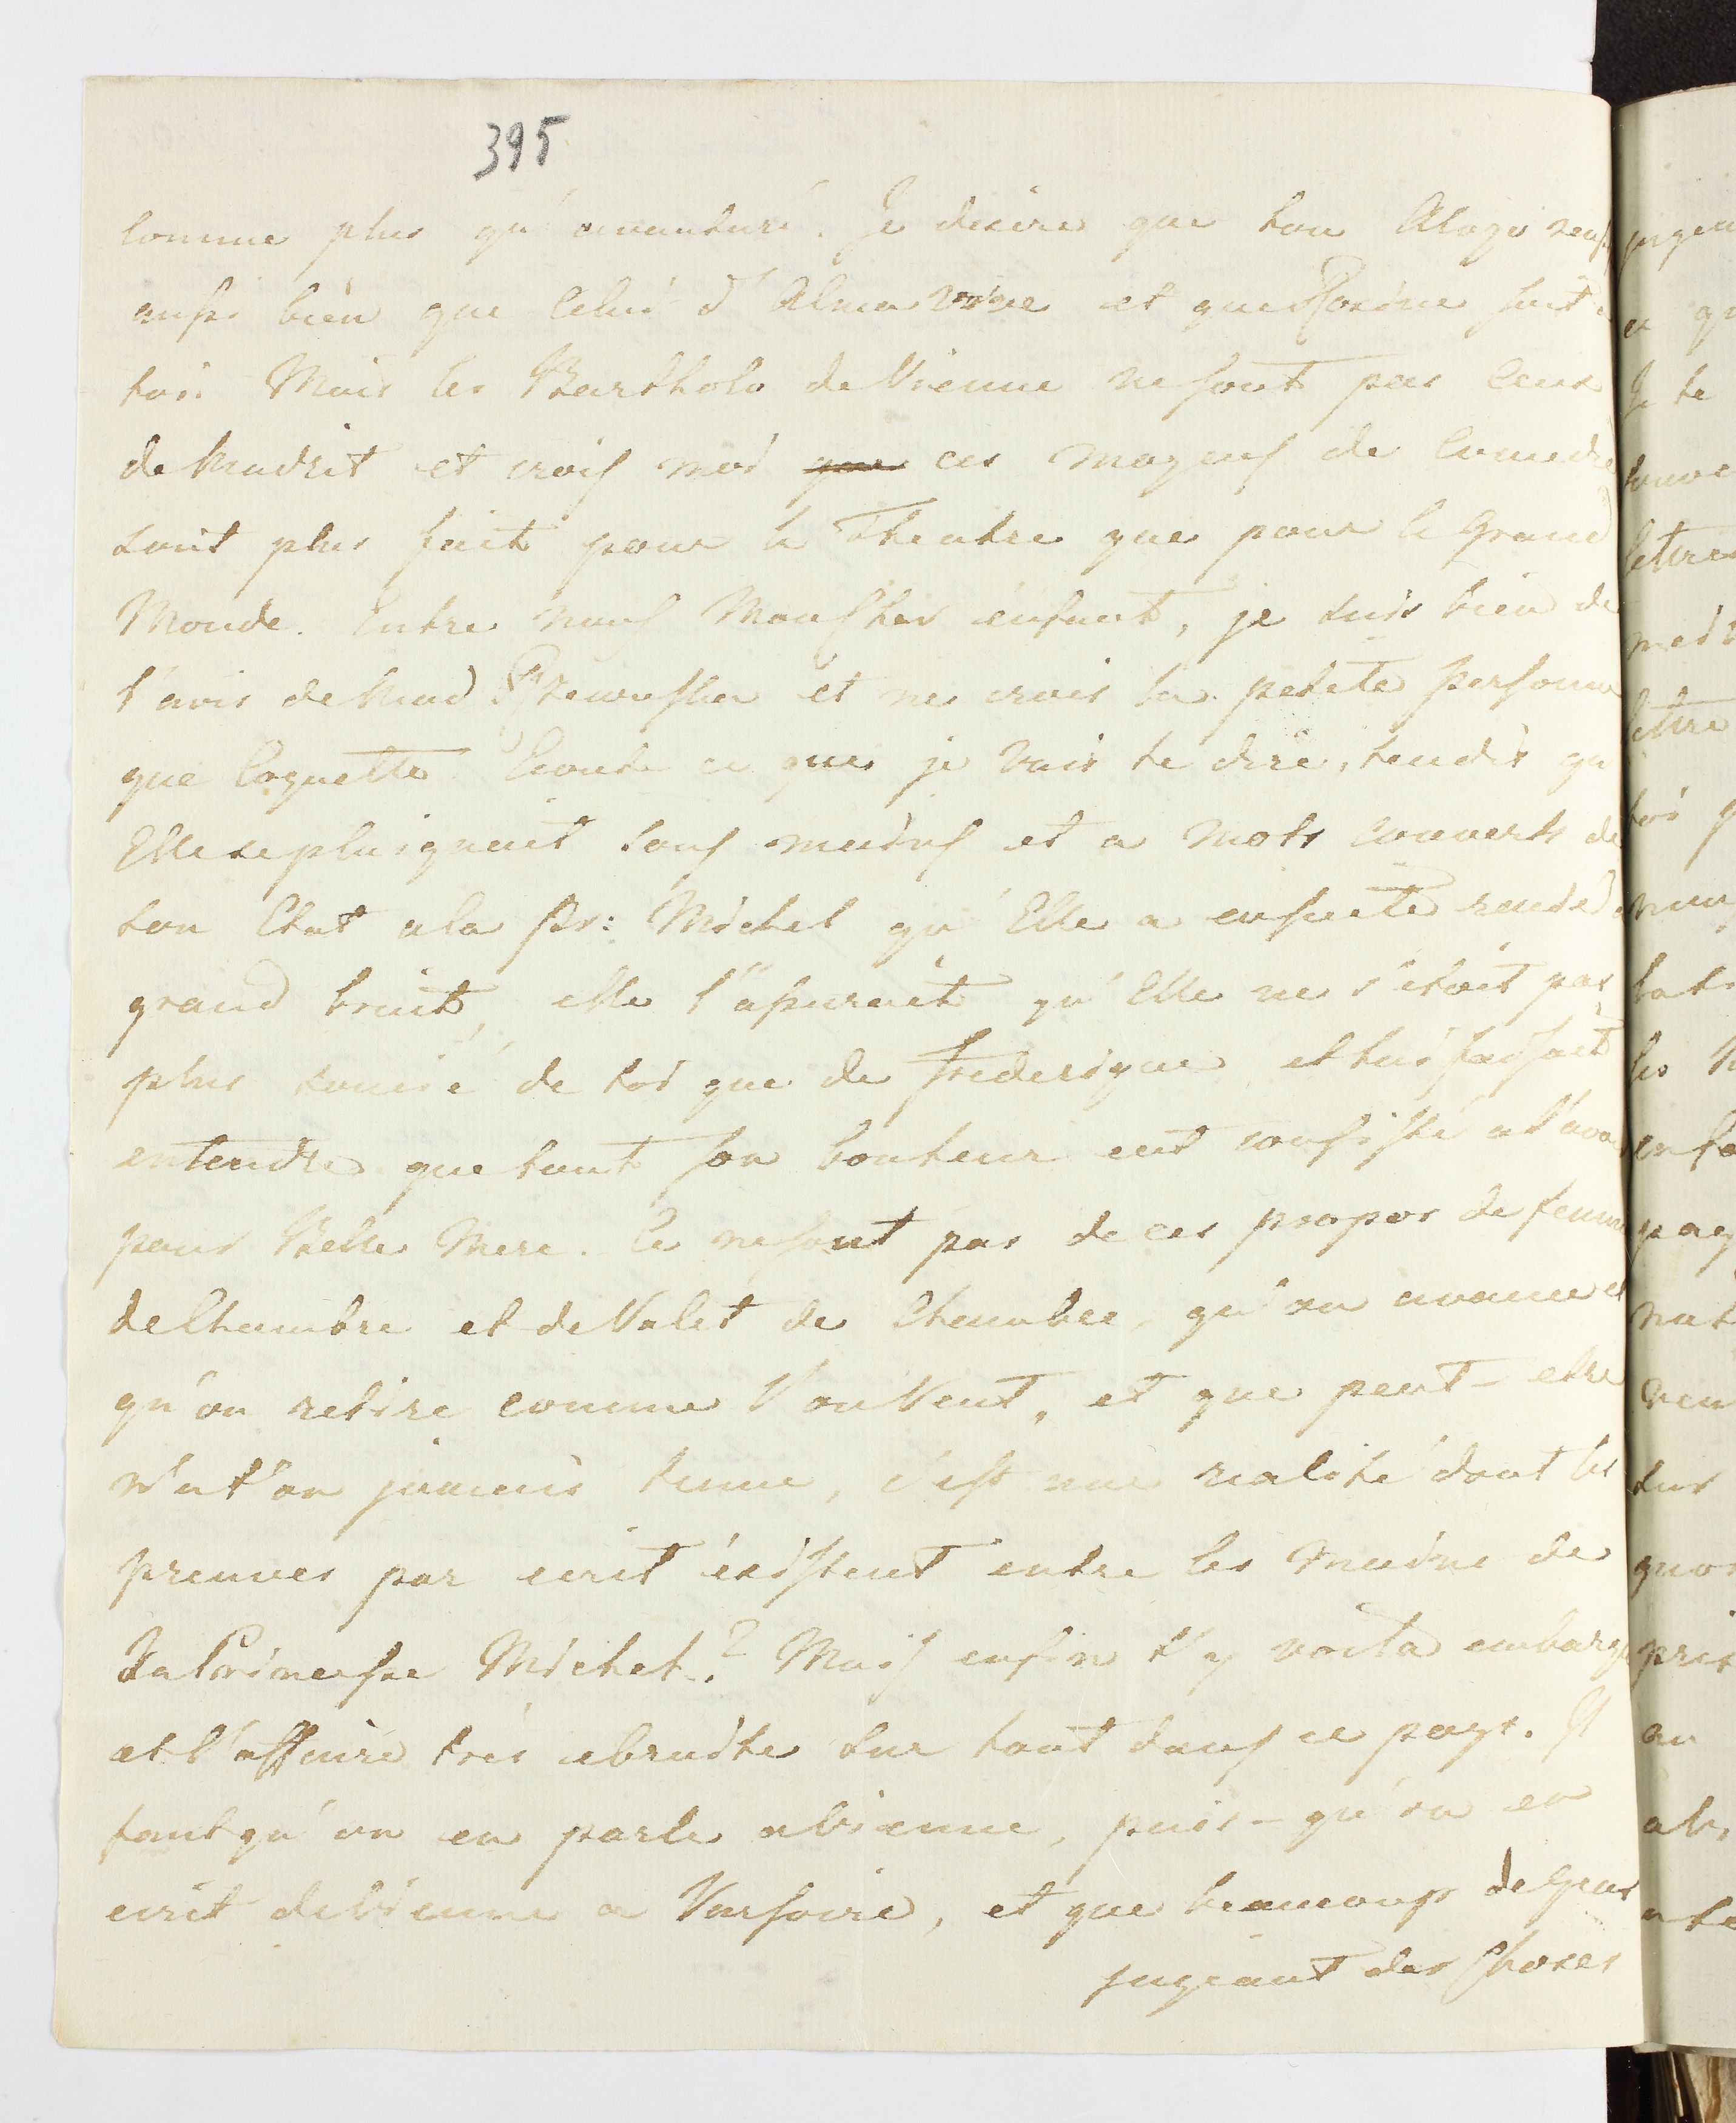 395
comme plus qu'avanturé. Je desire que ton Alogo
aussi bien que celui d'Almavive et que Rosine soit a
toi. Mais les Bartholo de Vienne ne sont pas ceux
de Madrit et crois moi ces moyens de Comedie
sont plus fait pour le Theatre que pour le grand
Monde. Entre nous Mon cher enfant, je suis bien de
l'avis de Mad et ne crois la petite personne
que Coquette. Ecoute ce que je vais te dire, tandis qu
Elle se plaignait sous mains et a mots couverts de
son Etat a la Pr: Michel qu'Elle a ensuite rendu a
grand bruit, elle l'assurait qu'Elle ne s'etoit pas
plus soucié de toi que de Frederique et lui faisait
entendre que tout son bonheur eut consisté a l'avoir
pour Belle Mere. Ce ne sont pas de ces propos de femme
de Chambre et de Valet de Chambre, qu'on avance et
qu'on retire comme l'on Veut, et que peut-etre
n'at'on jamais tenue, c'est une realité dont les
preuves par ecrit éxistent entre les mains de
La Princesse Michel? Mais enfin t'y voila embarqu
et l'affaire très ebruité sur tout dans ce pays. Il
faut qu'on en parle a Vienne, puis-qu'on en
ecrit de Vienne a Varsovie, et que beaucoup de gens
jugeant des choses